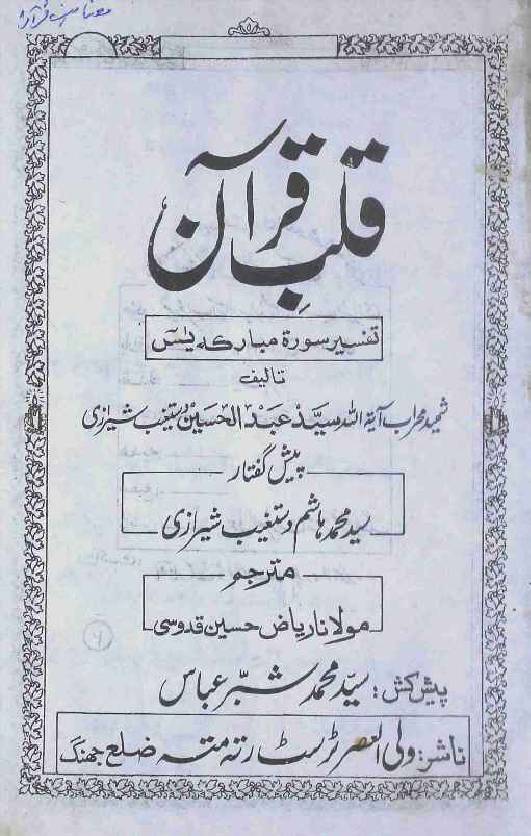 قلبِ قرآن
تفسیر سورۃ مبارکہ یٰسٓ
تالیف
شہید محراب آیۃ اللہ سیّد عبد الحسین دستغیب شیرازی
پیش گفتار
سید محمد ہاشم دستغیب شیرازی
مترجم
مولانا ریاض حسین قدوسی
پیش کش: سیّد محمد شبّر عباس
ناشر: ولی العصر ٹرسٹ رتہ متہ ضلع جھنگ